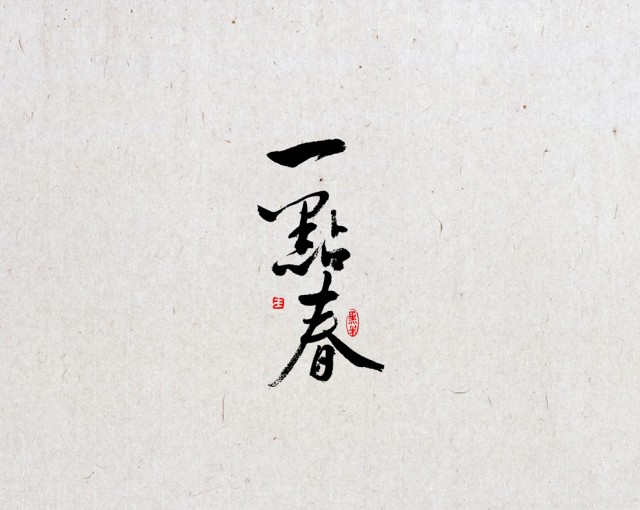 一點春